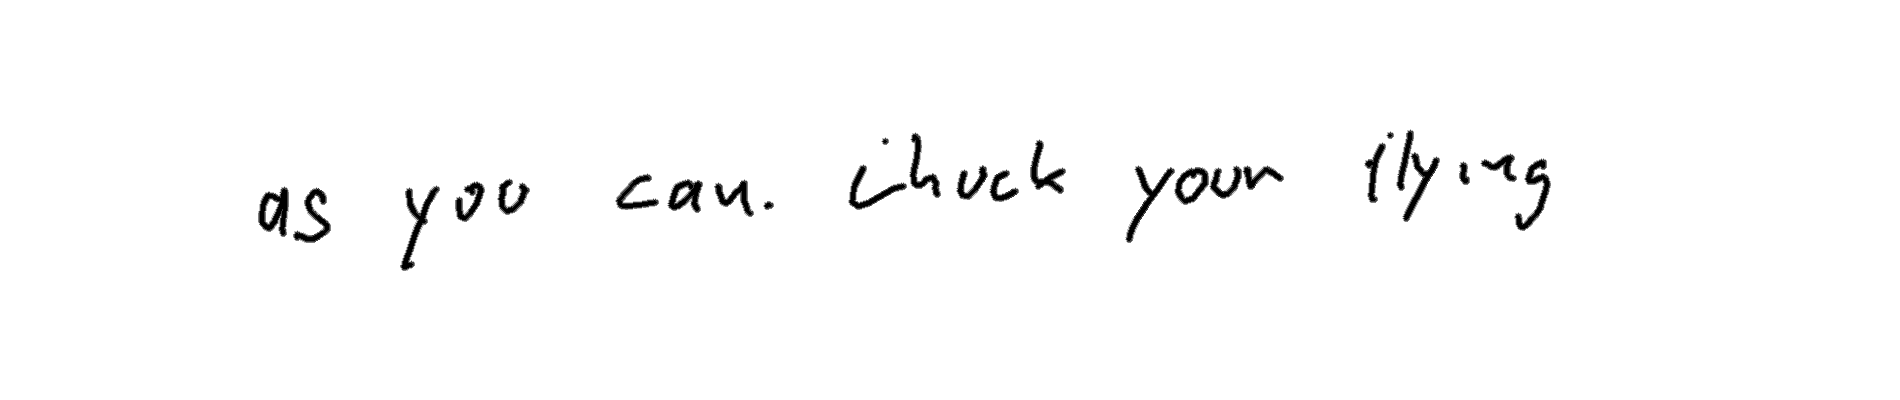 as you can. Chuck your flying